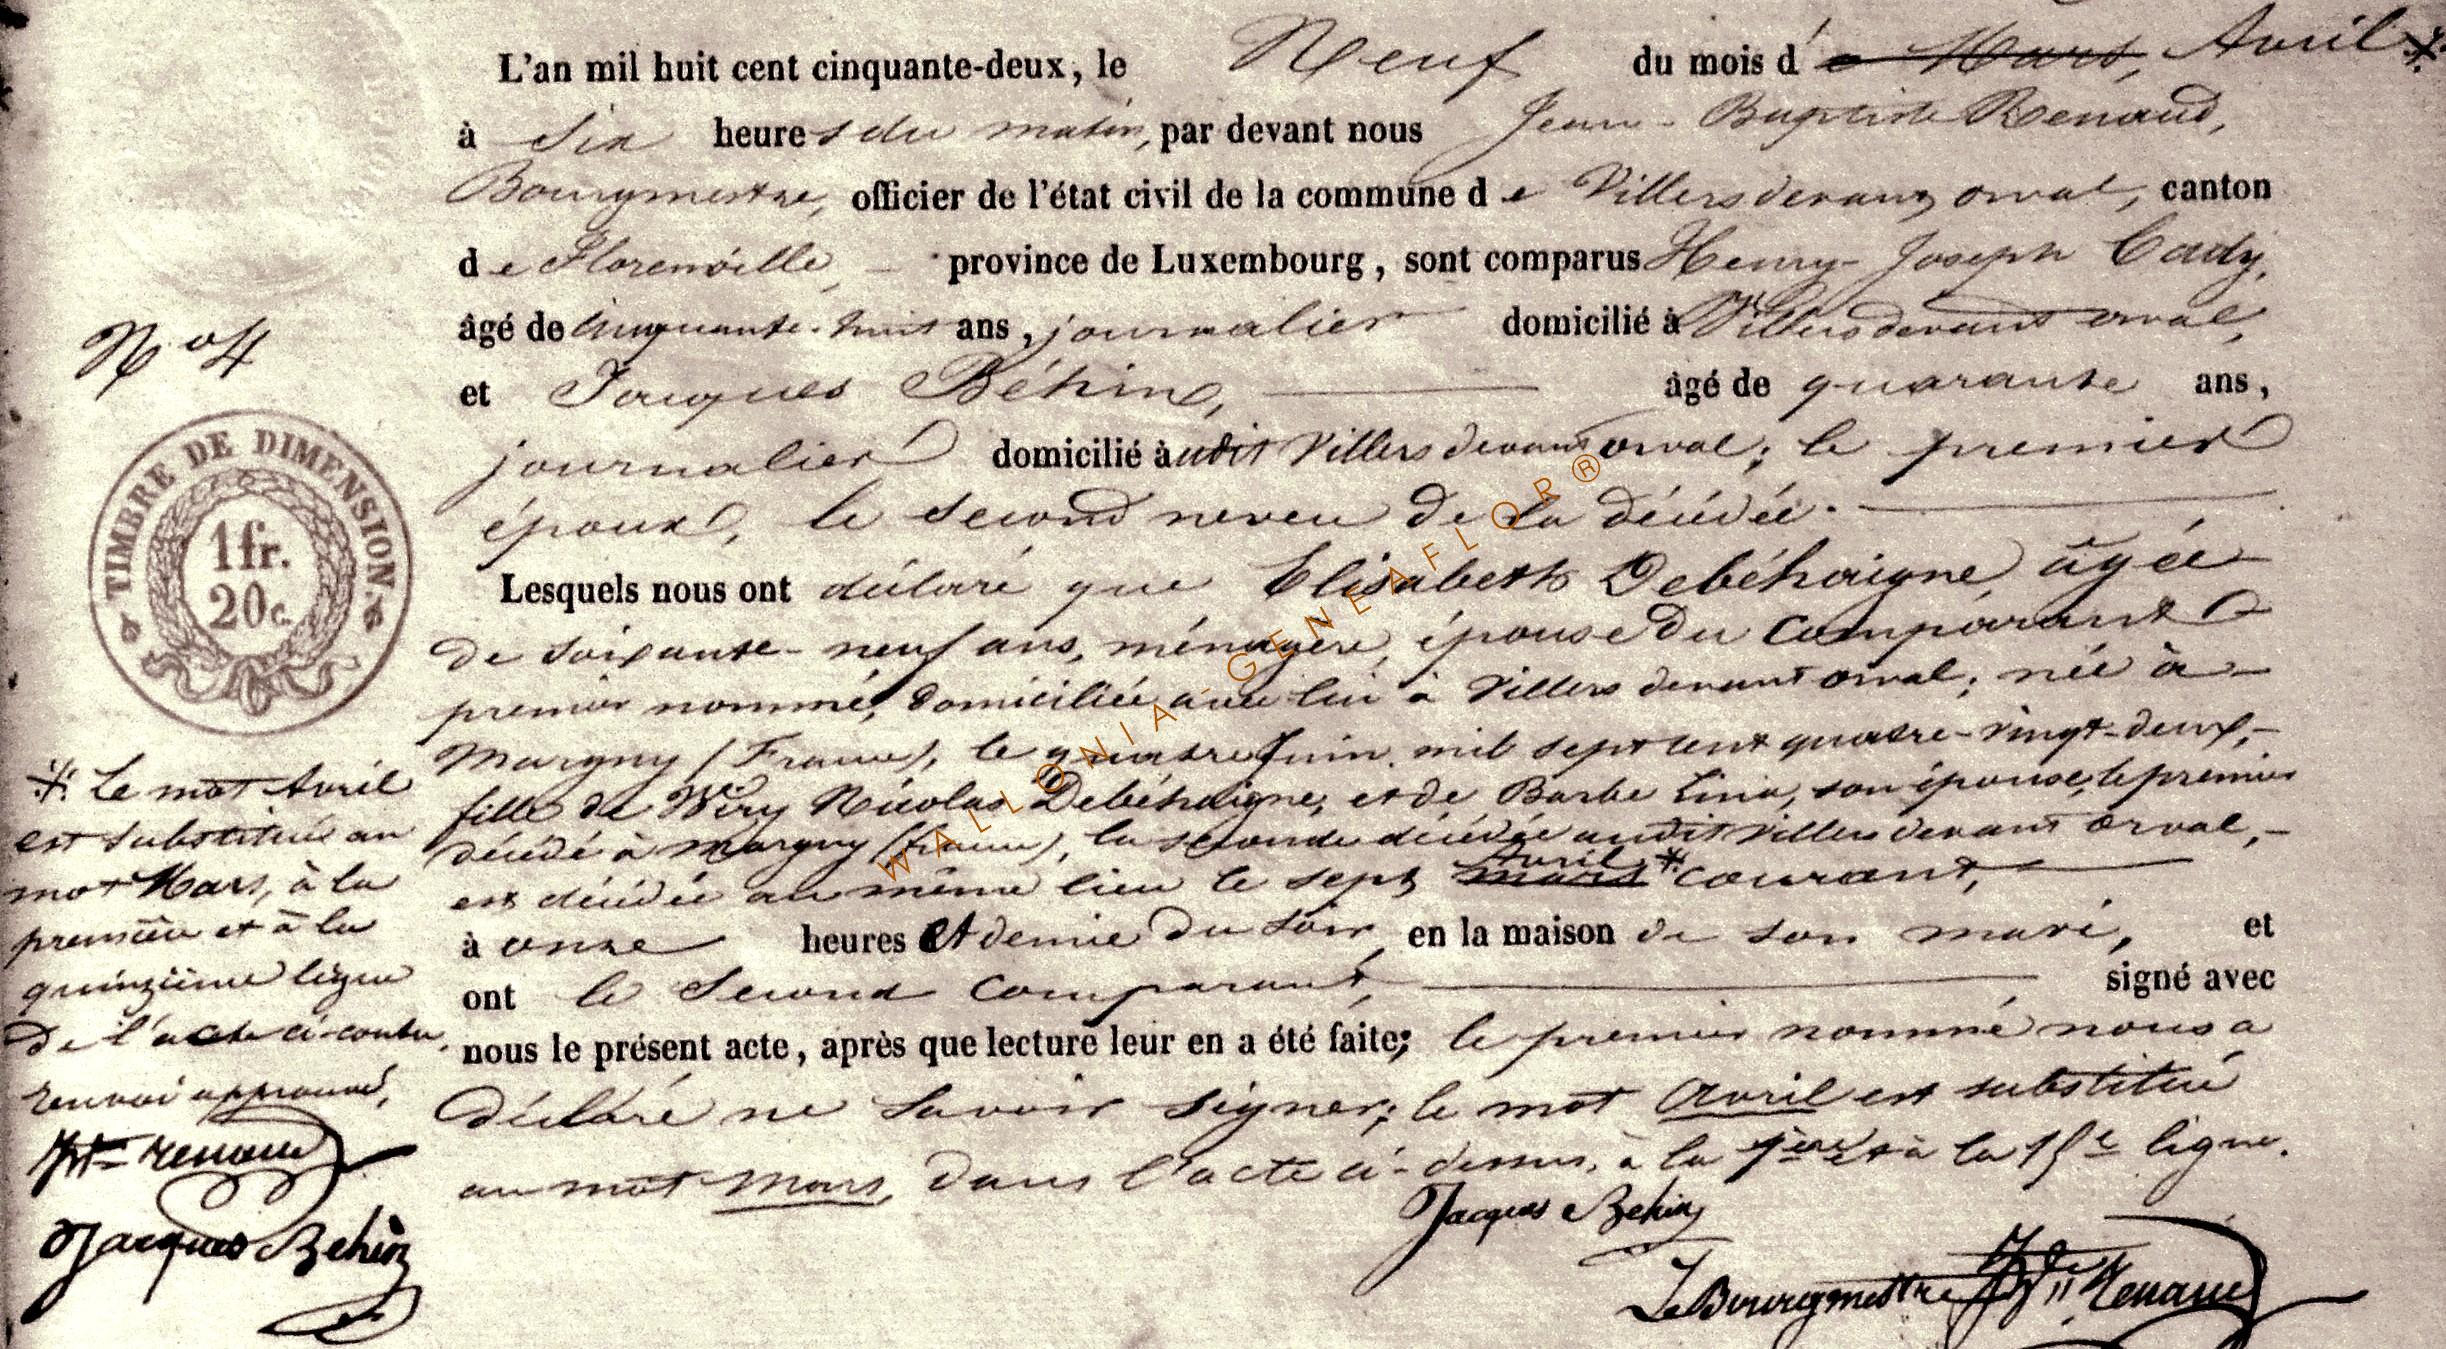 L'an mil huit cent cinquante-deux, le Neuf du mois d e Mars, Avril *
à Six heures du matin, par devant nous Jean-Baptiste Renaud,
Bourgmestre, officier de l'état civil de la commune de Villers devant orval, canton
de Florenville, province de Luxembourg, sont comparus Henry-Joseph Cady,
âgé de cinquante-huit ans, journalier domicilié à Villers devant orval,
et Jacques Béhin, âgé de quarante ans,
journalier domicilié audit Villers devant orval; le premier
époux, le second neveu de la décédée.
Lesquels nous ont déclaré que Elisabeth Debéhaigne, âgée
de soixante-neuf ans, ménagère, épouse du Comparant
premier nommé, domiciliée avec lui à Villers devant orval; née à
Margny (France), le quatre Juin mil sept cent quatre-vingt-deux,
fille de Wiry Nicolas Debéhaigne, et de Barbe Lino, son épouse, le premier
décédé à margny (france), la seconde décédée audit Villers devant orval,
est décédée au même lieu le sept mars Avril * courant,
à onze heures et demie du soir, en la maison de son mari, et
ont le Second Comparant, signé avec
nous le présent acte, après que lecture leur en a été faite; le premier nommé nous a
déclaré ne savoir signer; le mot avril est substitué
au mot mars, dans l'acte ci-dessus, à la 1ère et à la 15e ligne.
Jacques Behin
Le Bourgmestre JBte Renaud
No 4
TIMBRE DE DIMENSION.
1 fr.
20 c.
* Le mot Avril
est substitué au
mot Mars, à la
première et à la
quinzième ligne
de l'acte ci-contre,
renvoi approuvé,
JBte Renaud
Jacques Behin
WALLONIA-GENEAFLOR®